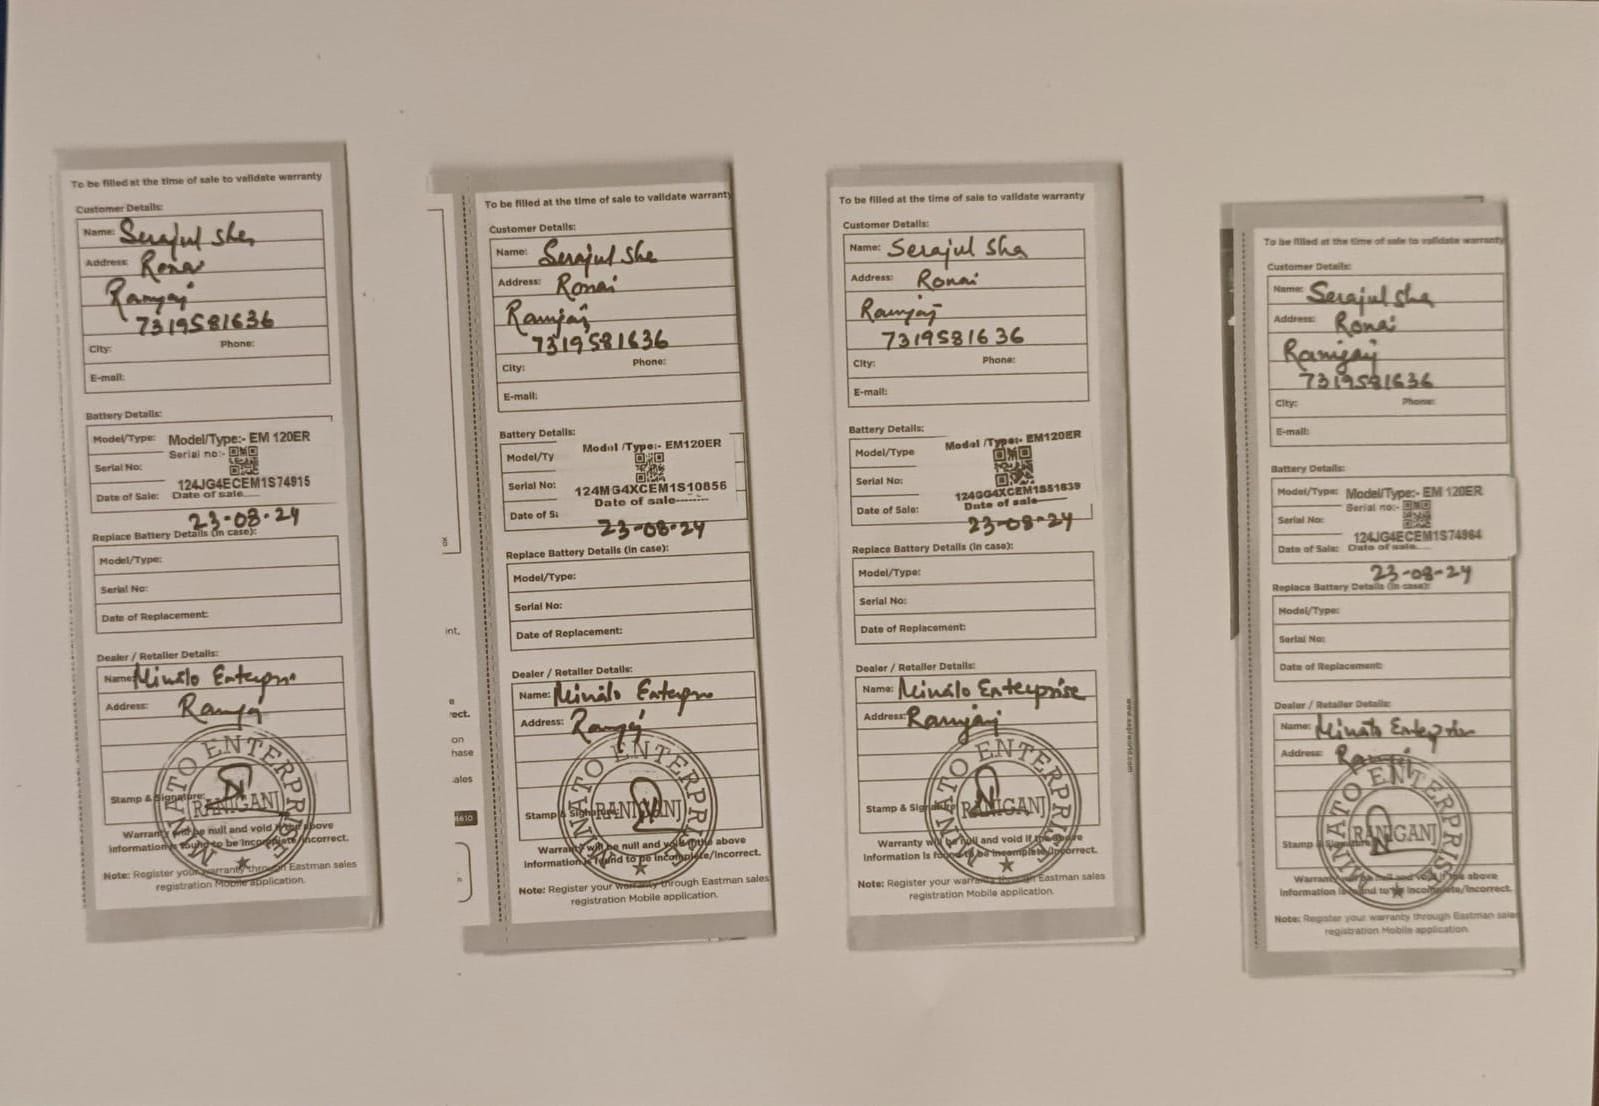 To be filled at the time of sale to validate warranty
Customer Details:
Name: Serajul Sha
Address: Rona
Ranigaj
7319581636
City: Phone:
E-mail:
Battery Details:
Model/Type: Model/Type:- EM 120ER
Serial no:-
Serial No:
124JG4ECEM1S74915
Date of Sale: Date of sale......
23-08-24
Replace Battery Details (in case):
Model/Type:
Serial No:
Date of Replacement:
Dealer / Retailer Details:
Name: Minato Enterprise
Address:
MINATO ENTERPRISE
RANIGANJ
Stamp & Signature:
Warranty will be null and void if the above
information is found to be incomplete/incorrect.
Note: Register your warranty through Eastman sales
registration Mobile application.
To be filled at the time of sale to validate warranty
Customer Details:
Name: Serajul Sha
Address: Ronai
Ranigaj
7319581636
City: Phone:
E-mail:
Battery Details:
Model/Ty Model /Type:- EM120ER
Serial No: 124MG4XCEM1S10856
Date of sale--------
Date of S
23-08-24
Replace Battery Details (in case):
Model/Type:
Serial No:
Date of Replacement:
Dealer / Retailer Details:
Name: Minato Enterprise
Address:
MINATO ENTERPRISE
RANIGANJ
Stamp & Signature:
Warranty will be null and void if the above
information is found to be incomplete/incorrect.
Note: Register your warranty through Eastman sales
registration Mobile application.
int,
rect.
on
hase
ales
To be filled at the time of sale to validate warranty
Customer Details:
Name: Serajul Sha
Address: Ronai
Ranigaj
7319581636
City: Phone:
E-mail:
Battery Details:
Model/Type Model /Type:- EM120ER
Serial No:
124GG4XCEM1S51839
Date of sale------
Date of Sale:
23-08-24
Replace Battery Details (in case):
Model/Type:
Serial No:
Date of Replacement:
Dealer / Retailer Details:
Name: Minato Enterprise
Address: Ranigaj
MINATO ENTERPRISE
RANIGANJ
Stamp & Signature
Warranty will be null and void if the above
information is found to be incomplete/incorrect.
Note: Register your warranty through Eastman sales
registration Mobile application.
To be filled at the time of sale to validate warranty
Customer Details:
Name: Serajul Sha
Address: Ronai
Ranigaj
7319581636
City: Phone:
E-mail:
Battery Details:
Model/Type: Model/Type:- EM 120ER
Serial no:-
Serial No:
124JG4ECEM1S74984
Date of Sale: Date of sale......
23-08-24
Replace Battery Details (in case):
Model/Type:
Serial No:
Date of Replacement:
Dealer / Retailer Details:
Name: Minato Enterprise
Address:
MINATO ENTERPRISE
RANIGANJ
Stamp & Signature
Warranty will be null and void if the above
information is found to be incomplete/incorrect.
Note: Register your warranty through Eastman sales
registration Mobile application.